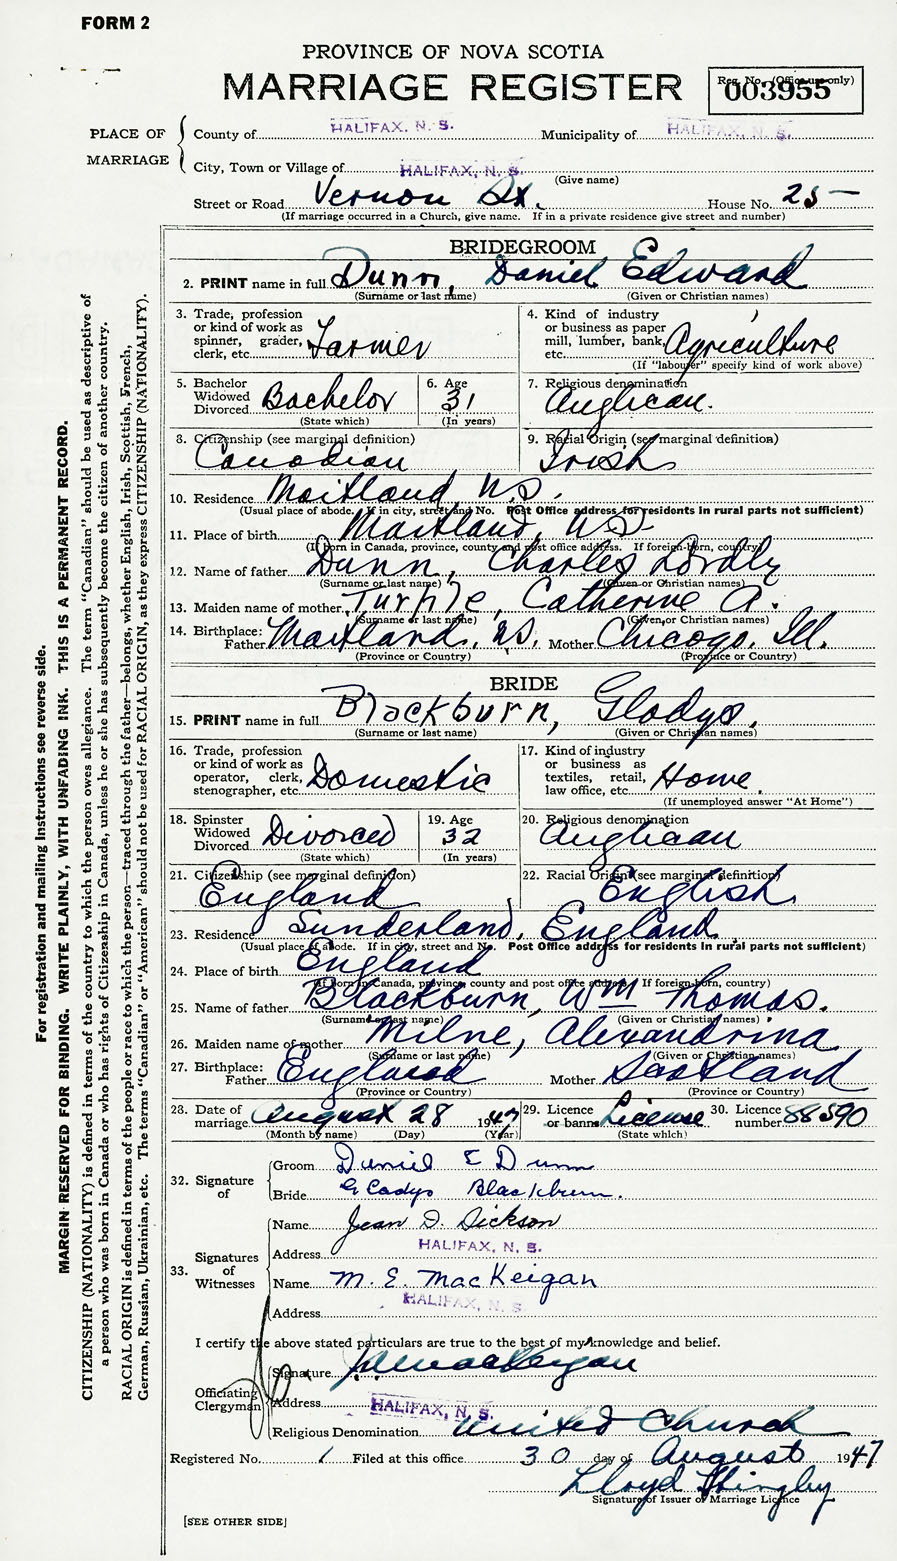 FORM 2
PROVINCE OF NOVA SCOTIA
MARRIAGE REGISTER
Reg. No. (Office use only)
003955
PLACE OF MARRIAGE
County of HALIFAX, N. S. Municipality of HALIFAX, N. S.
City, Town or Village of HALIFAX, N. S.
(Give name)
Street or Road Vernon St. House No. 25 —
(If marriage occurred in a Church, give name. If in a private residence give street and number)
BRIDEGROOM
2. PRINT name in full Dunn, Daniel Edward
(Surname or last name) (Given or Christian names)
3. Trade, profession or kind of work as spinner, grader, clerk, etc. Farmer
4. Kind of industry or business as paper mill, lumber, bank, etc. Agriculture
(If "labourer" specify kind of work above)
5. Bachelor Widowed Divorced Bachelor
(State which)
6. Age 31
(In years)
7. Religious denomination Anglican.
8. Citizenship (see marginal definition) Canadian
9. Racial Origin (see marginal definition) Irish
10. Residence Maitland, N.S.
(Usual place of abode. If in city, street and No. Post Office address for residents in rural parts not sufficient)
11. Place of birth Maitland, N.S.
(If born in Canada, province, county and post office address. If foreign-born, country)
12. Name of father Dunn, Charles Lordly
(Surname or last name) (Given or Christian names)
13. Maiden name of mother Turple, Catherine A.
(Surname or last name) (Given or Christian names)
14. Birthplace: Father Maitland, N.S. Mother Chicago, Ill.
(Province or Country) (Province or Country)
BRIDE
15. PRINT name in full Blackburn, Gladys,
(Surname or last name) (Given or Christian names)
16. Trade, profession or kind of work as operator, clerk, stenographer, etc. Domestic
17. Kind of industry or business as textiles, retail, law office, etc. Home.
(If unemployed answer "At Home")
18. Spinster Widowed Divorced Divorced
(State which)
19. Age 32
(In years)
20. Religious denomination Anglican
21. Citizenship (see marginal definition) England
22. Racial Origin (see marginal definition) English
23. Residence Sunderland, England
(Usual place of abode. If in city, street and No. Post Office address for residents in rural parts not sufficient)
24. Place of birth England
(If born in Canada, province, county and post office address. If foreign-born, country)
25. Name of father Blackburn, Wm Thomas.
(Surname or last name) (Given or Christian names)
26. Maiden name of mother Milne, Alexandrina
(Surname or last name) (Given or Christian names)
27. Birthplace: Father England Mother Scotland
(Province or Country) (Province or Country)
28. Date of marriage August 28 1947
(Month by name) (Day) (Year)
29. Licence or banns License
(State which)
30. Licence number 88590
32. Signature of
Groom Daniel E Dunn
Bride Gladys Blackburn.
33. Signatures of Witnesses
Name Jean D. Dickson
Address HALIFAX, N. S.
Name M. E. MacKeigan
Address HALIFAX, N. S.
I certify the above stated particulars are true to the best of my knowledge and belief.
Officiating Clergyman
Signature MacKeigan
Address HALIFAX, N. S.
Religious Denomination United Church
Registered No. 1 Filed at this office 30 day of August 1947
Lloyd
Signature of Issuer of Marriage Licence
[SEE OTHER SIDE]
For registration and mailing instructions see reverse side.
MARGIN RESERVED FOR BINDING. WRITE PLAINLY, WITH UNFADING INK. THIS IS A PERMANENT RECORD.
CITIZENSHIP (NATIONALITY) is defined in terms of the country to which the person owes allegiance. The term "Canadian" should be used as descriptive of
a person who was born in Canada or who has rights of Citizenship in Canada, unless he or she has subsequently become the citizen of another country.
RACIAL ORIGIN is defined in terms of the people or race to which the person—traced through the father—belongs, whether English, Irish, Scottish, French,
German, Russian, Ukrainian, etc. The terms "Canadian" or "American" should not be used for RACIAL ORIGIN, as they express CITIZENSHIP (NATIONALITY).